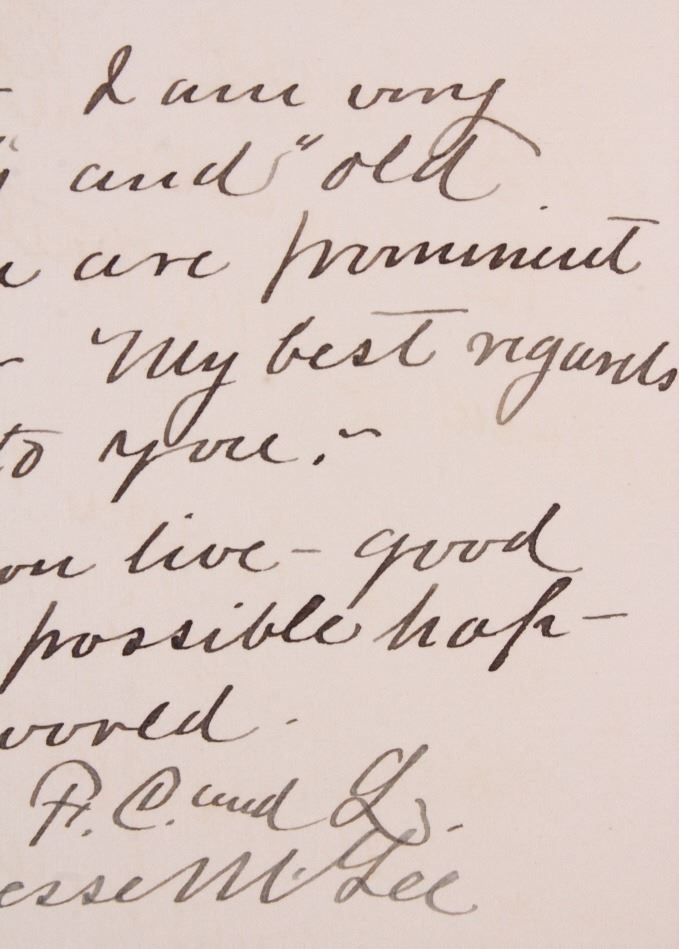 - I am very
" and "old
are prominent
- My best regards
to you. -
live - good
possible hap-
world.
F. C. and L.
esse M. Lee